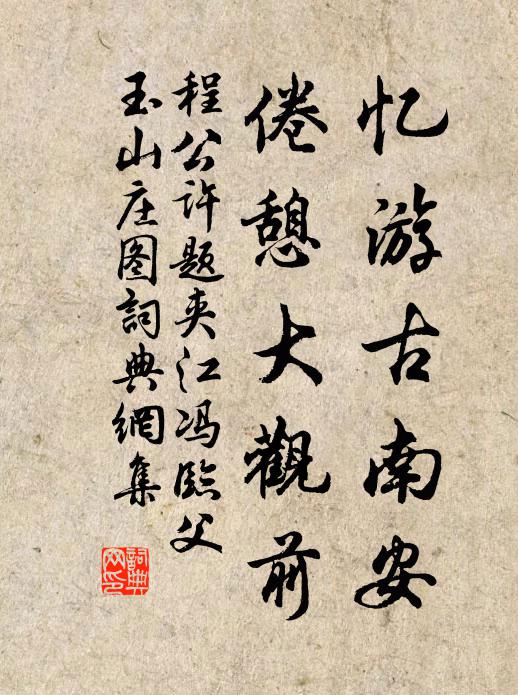 忆游古南安
倦憩大觀前
程公许题夹江冯臨父
玉山庄图詞典網集
詞典网印